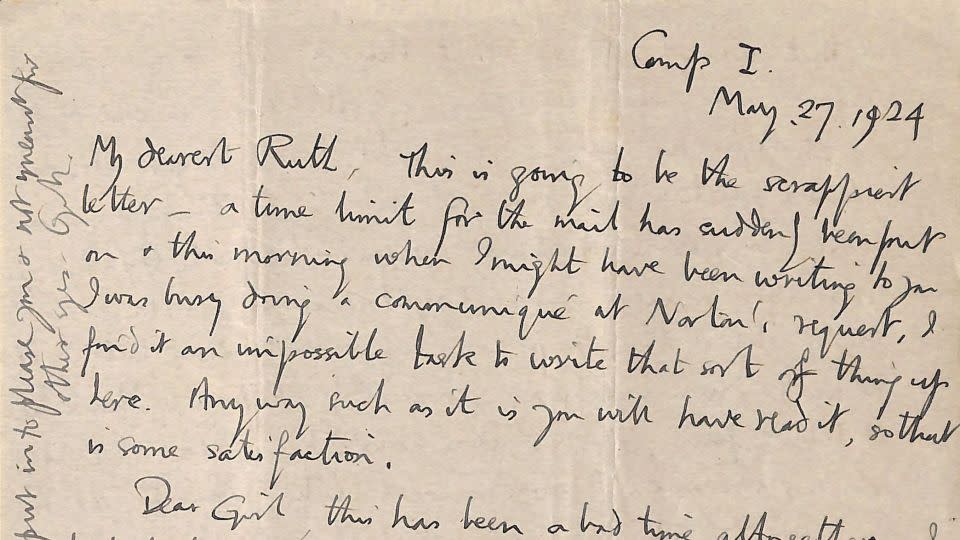 Camp I.
May. 27. 1924
My dearest Ruth, This is going to be the scrappiest
letter – a time limit for the mail has suddenly been put
on & this morning when I might have been writing to you
I was busy doing a communiqué at Norton's request. I
find it an impossible task to write that sort of thing up
here. Anyway such as it is you will have read it, so that
is some satisfaction.
Dear Girl, this has been a bad time altogether. I
put in to please you & not meant for
other eyes.